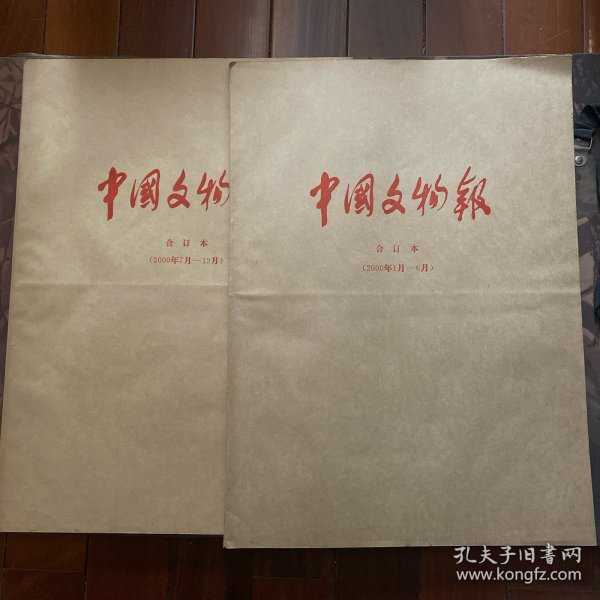 中國文物
合订本
(2000年7月—12月)
中國文物報
合订本
(2000年1月—6月)
孔夫子旧书网
www.kongfz.com